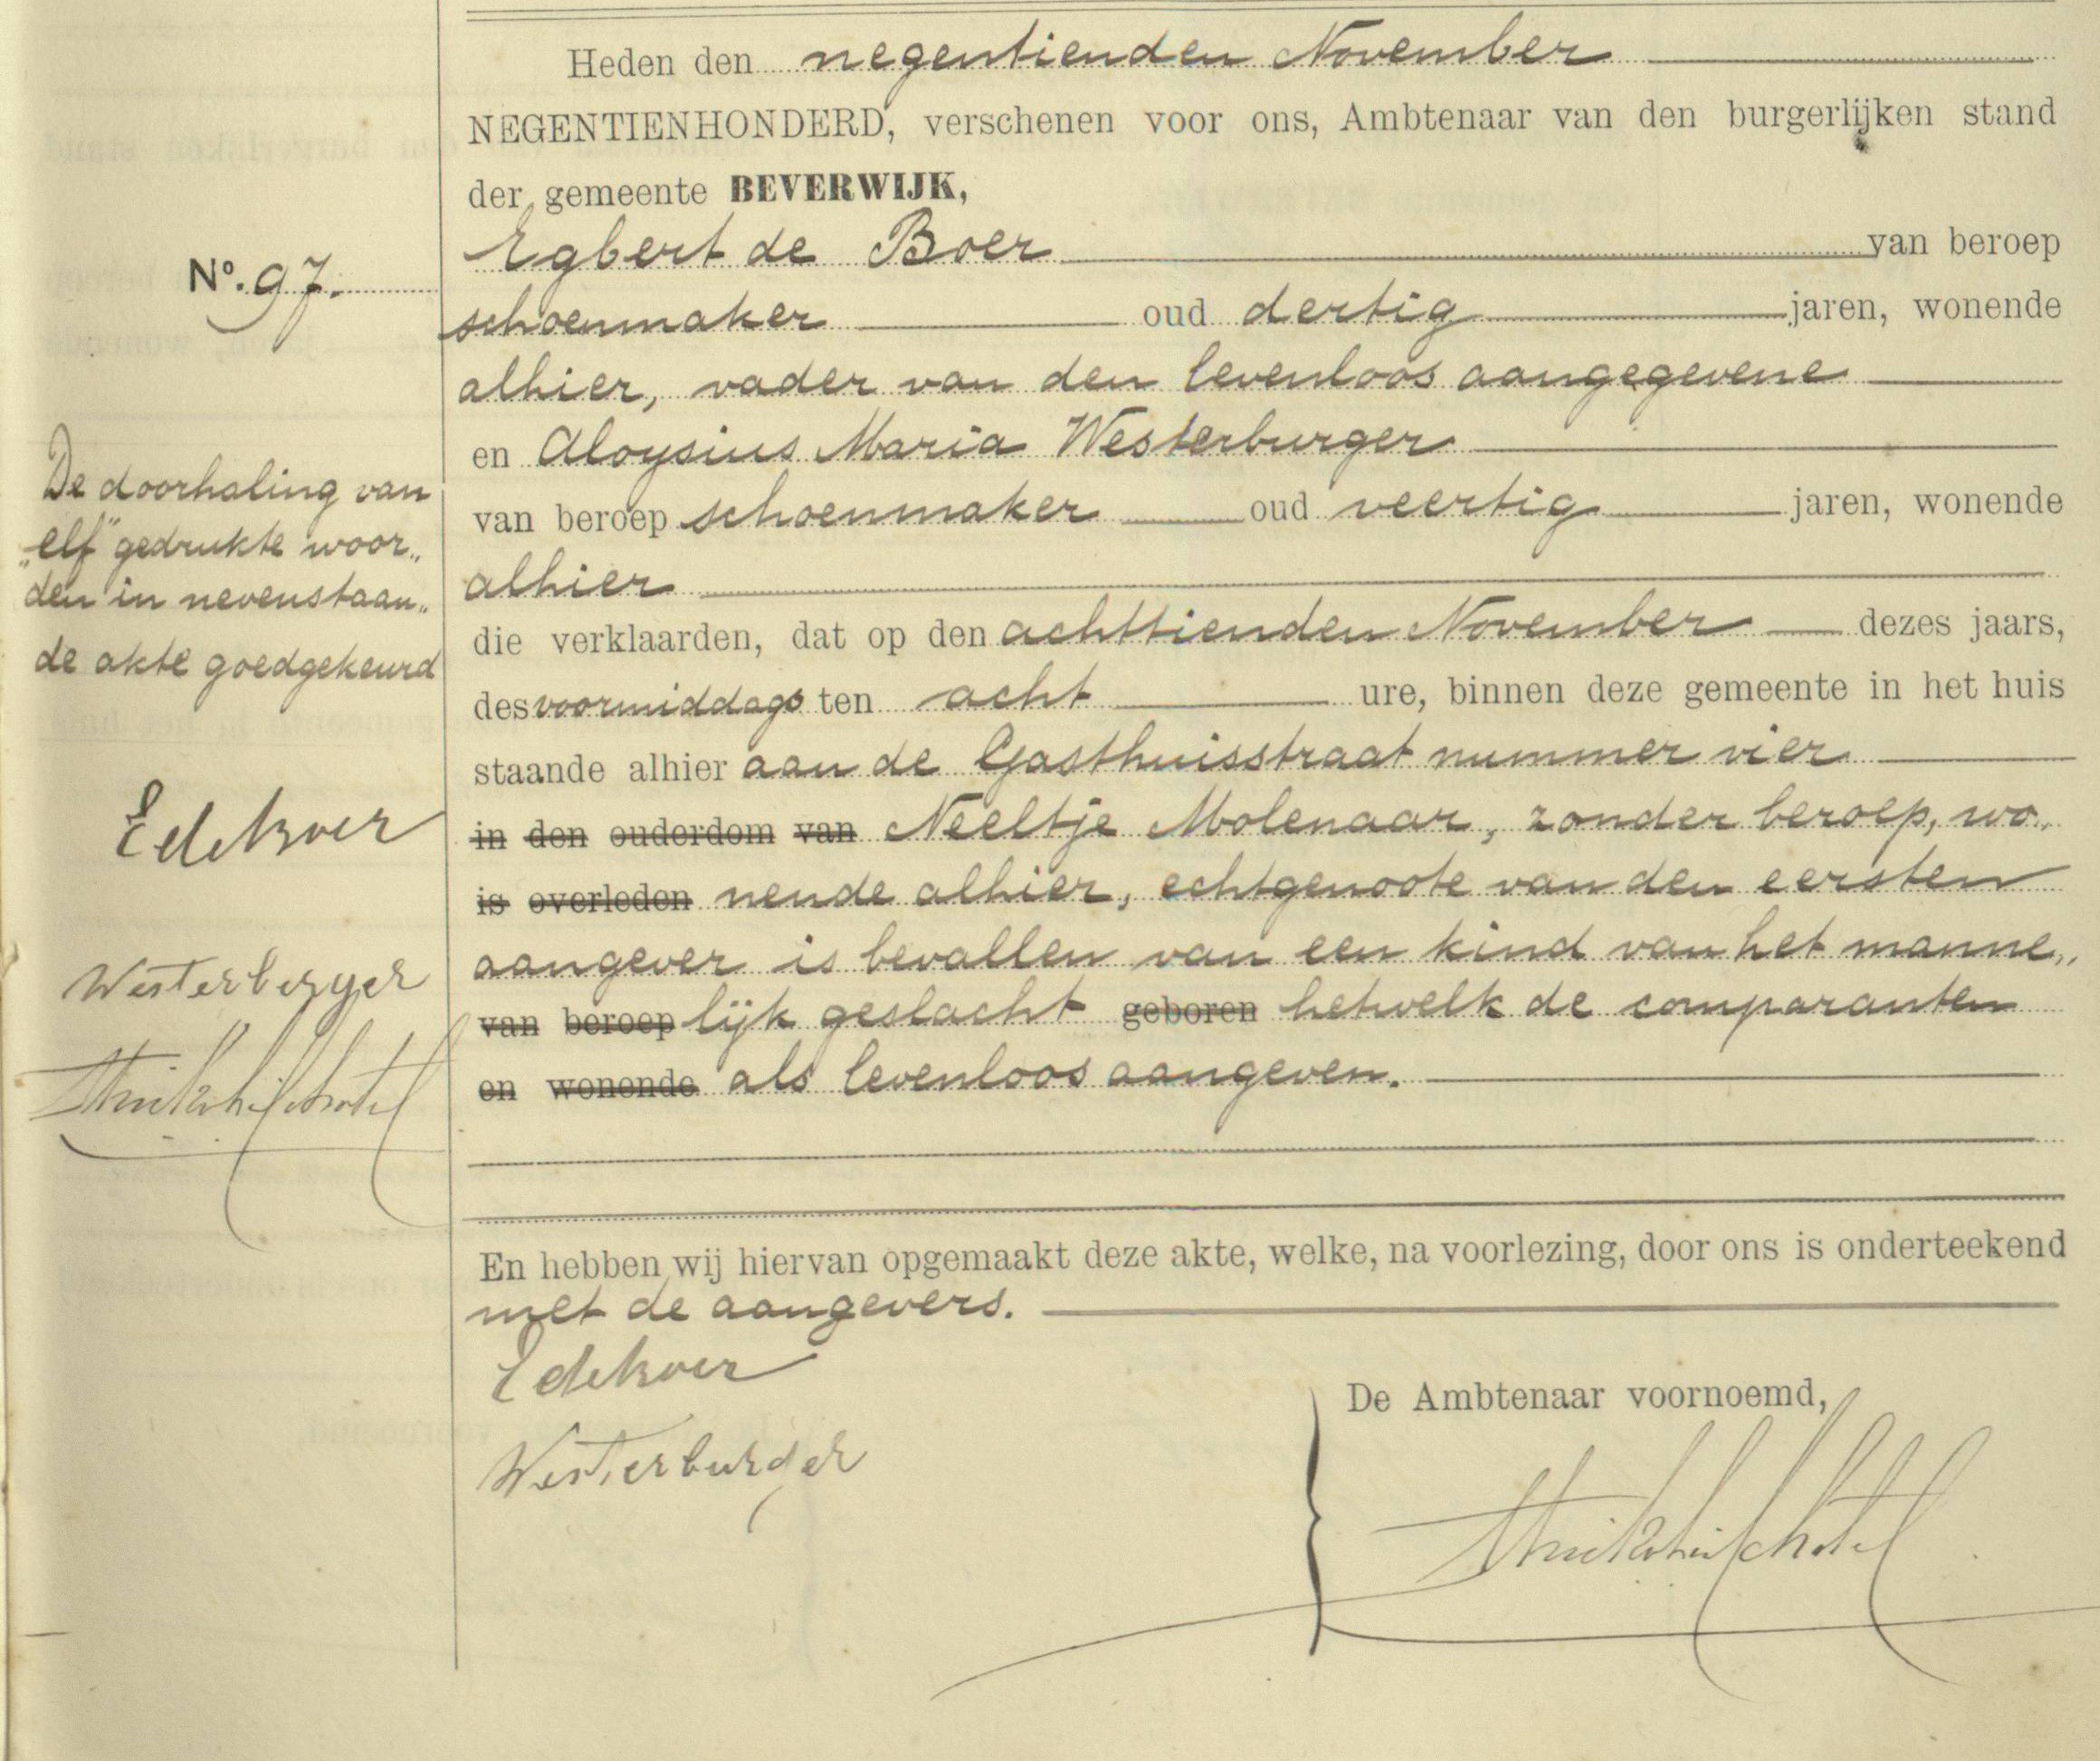 Heden den negentienden November
NEGENTIENHONDERD, verschenen voor ons, Ambtenaar van den burgerlijken stand
der gemeente BEVERWIJK,
Egbert de Boer van beroep
schoenmaker oud dertig jaren, wonende
alhier, vader van den levenloos aangegevene
en Aloysius Maria Westerburger
van beroep schoenmaker oud veertig jaren, wonende
alhier
die verklaarden, dat op den achttienden November dezes jaars,
des voormiddags ten acht ure, binnen deze gemeente in het huis
staande alhier aan de Gasthuisstraat nummer vier
in den ouderdom van Neeltje Molenaar, zonder beroep, wo„
is overleden nende alhier, echtgenoote van den eersten
aangever is bevallen van een kind van het manne„
van beroep lijk geslacht geboren hetwelk de comparanten
en wonende als levenloos aangeven.
En hebben wij hiervan opgemaakt deze akte, welke, na voorlezing, door ons is onderteekend
met de aangevers.
E de Boer
Westerburger
De Ambtenaar voornoemd,
No. 97.
De doorhaling van
„elf" gedrukte woor„
den in nevenstaan„
de akte goedgekeurd
E de Boer
Westerburger